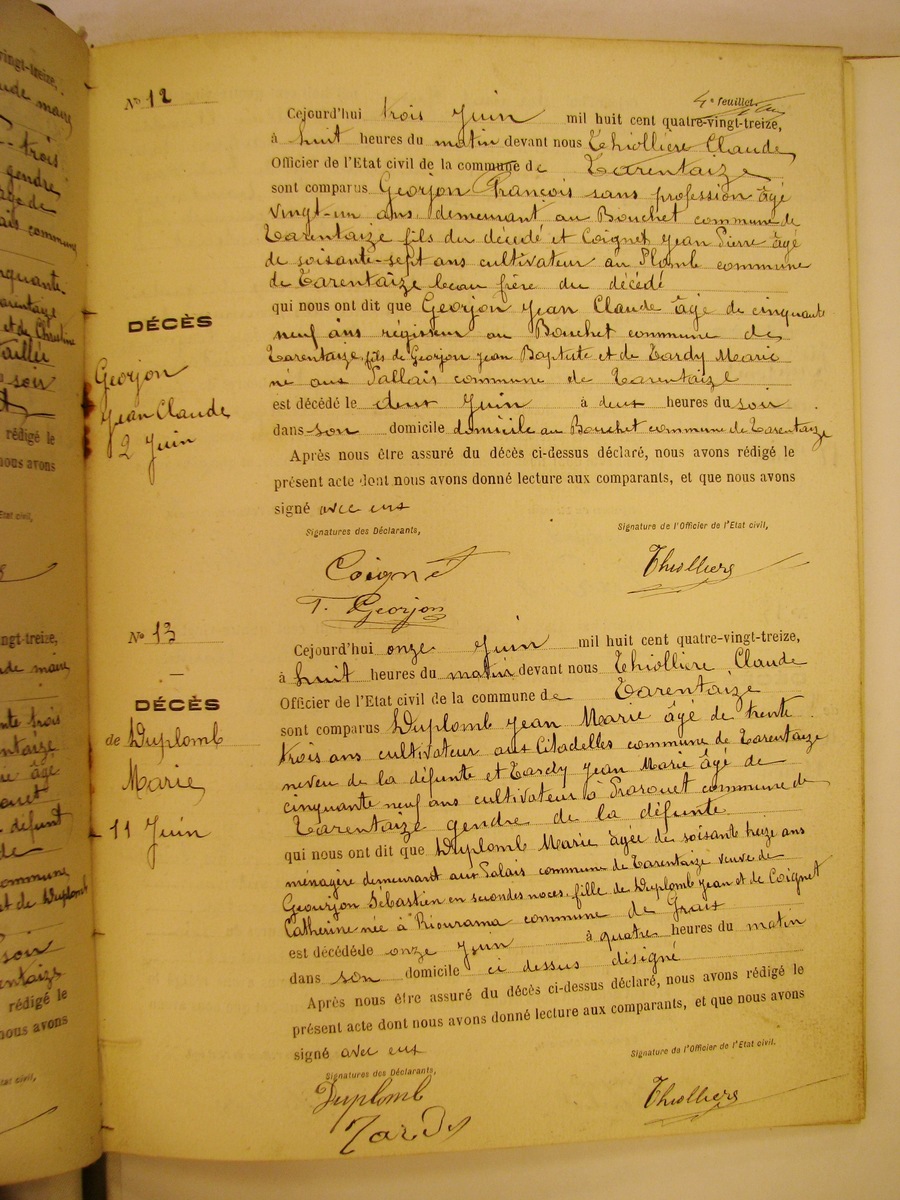 4e feuillet.
No 12
Cejourd'hui trois Juin mil huit cent quatre-vingt-treize,
à huit heures du matin devant nous Thiollière Claude
Officier de l'Etat civil de la commune de Tarentaize
sont comparus Georjon François sans profession âgé
vingt-un ans, demeurant au Bouchet commune de
Tarentaize fils du décédé et Coignet Jean Pierre âgé
de soisante-sept ans cultivateur au Plomb commune
de Tarentaize beau frère du décédé
qui nous ont dit que Georjon Jean Claude âgé de cinquante
neuf ans régisseur au Bouchet commune de
Tarentaize, fils de Georjon Jean Baptiste et de Tardy Marie
né aux Pallais commune de Tarentaize
est décédé le deux Juin à deux heures du soir
dans son domicile domicile au Bouchet commune de Tarentaize
Après nous être assuré du décès ci-dessus déclaré, nous avons rédigé le
présent acte dont nous avons donné lecture aux comparants, et que nous avons
signé avec eux
DÉCÈS
Georjon
Jean Claude
2 Juin
Signatures des Déclarants,
Signature de l'Officier de l'Etat civil,
Coignet
F. Georjon
Thiolliere
No 13
Cejourd'hui onze Juin mil huit cent quatre-vingt-treize,
à huit heures du matin devant nous Thiollière Claude
Officier de l'Etat civil de la commune de Tarentaize
sont comparus Duplomb Jean Marie âgé de trente
trois ans cultivateur aux Citadelles commune de Tarentaize
neveu de la défunte et Tardy Jean Marie âgé de
cinquante neuf ans cultivateur à Prarouet commune de
Tarentaize gendre de la défunte
qui nous ont dit que Duplomb Marie âgée de soisante treize ans
ménagère demeurant aux Palais commune de Tarentaize veuve de
Geourjon Sébastien en secondes noces, fille de Duplomb Jean et de Coignet
Catherine née à Riourama commune de Graix
est décédéde onze Juin à quatre heures du matin
dans son domicile ci dessus désigné
Après nous être assuré du décès ci-dessus déclaré, nous avons rédigé le
présent acte dont nous avons donné lecture aux comparants, et que nous avons
signé avec eux
DÉCÈS
de Duplomb
Marie
11 Juin
Signatures des Déclarants,
Signature de l'Officier de l'Etat civil.
Duplomb
Tardy
Thiolliere